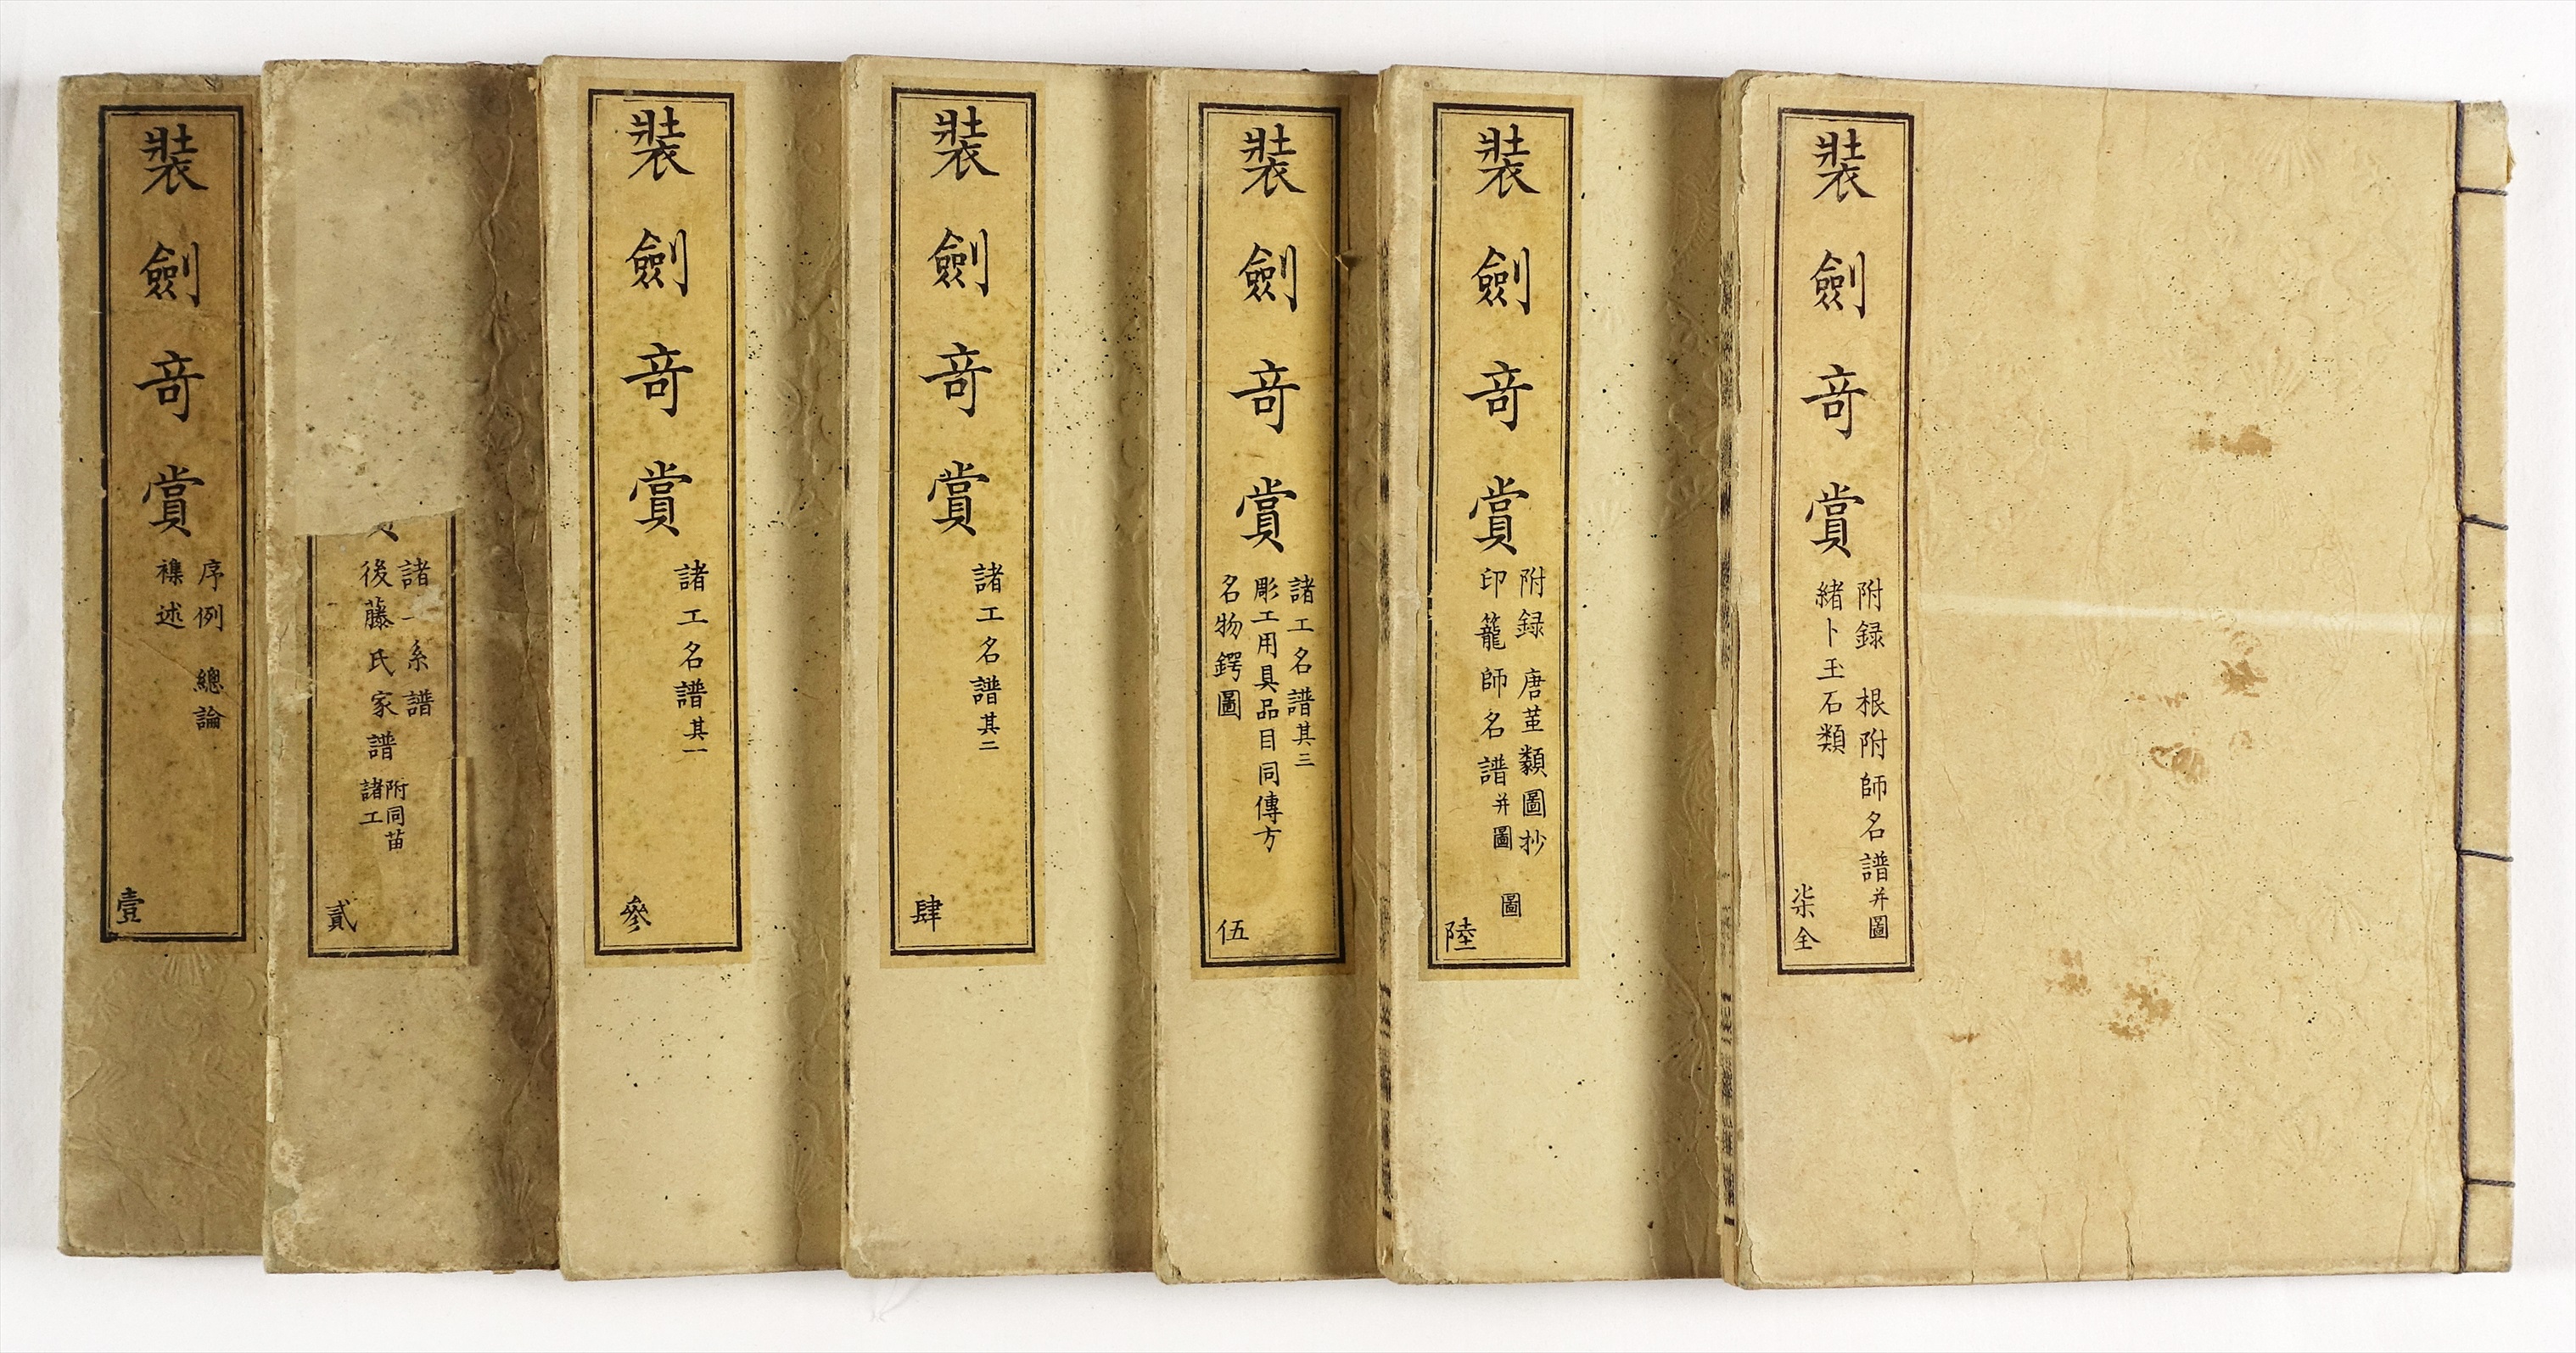 裝劍竒賞
序例 總論
襍述
壹
諸工系譜
後藤氏家譜 附同苗
諸工
貳
裝劍竒賞
諸工名譜其一
參
裝劍竒賞
諸工名譜其二
肆
裝劍竒賞
諸工名譜其三
彫工用具品目同傳方
名物鍔圖
伍
裝劍竒賞
附録 唐革類圖抄
印籠師名譜并圖 圖
陸
裝劍竒賞
附録 根附師名譜并圖
緒卜玉石類
柒全